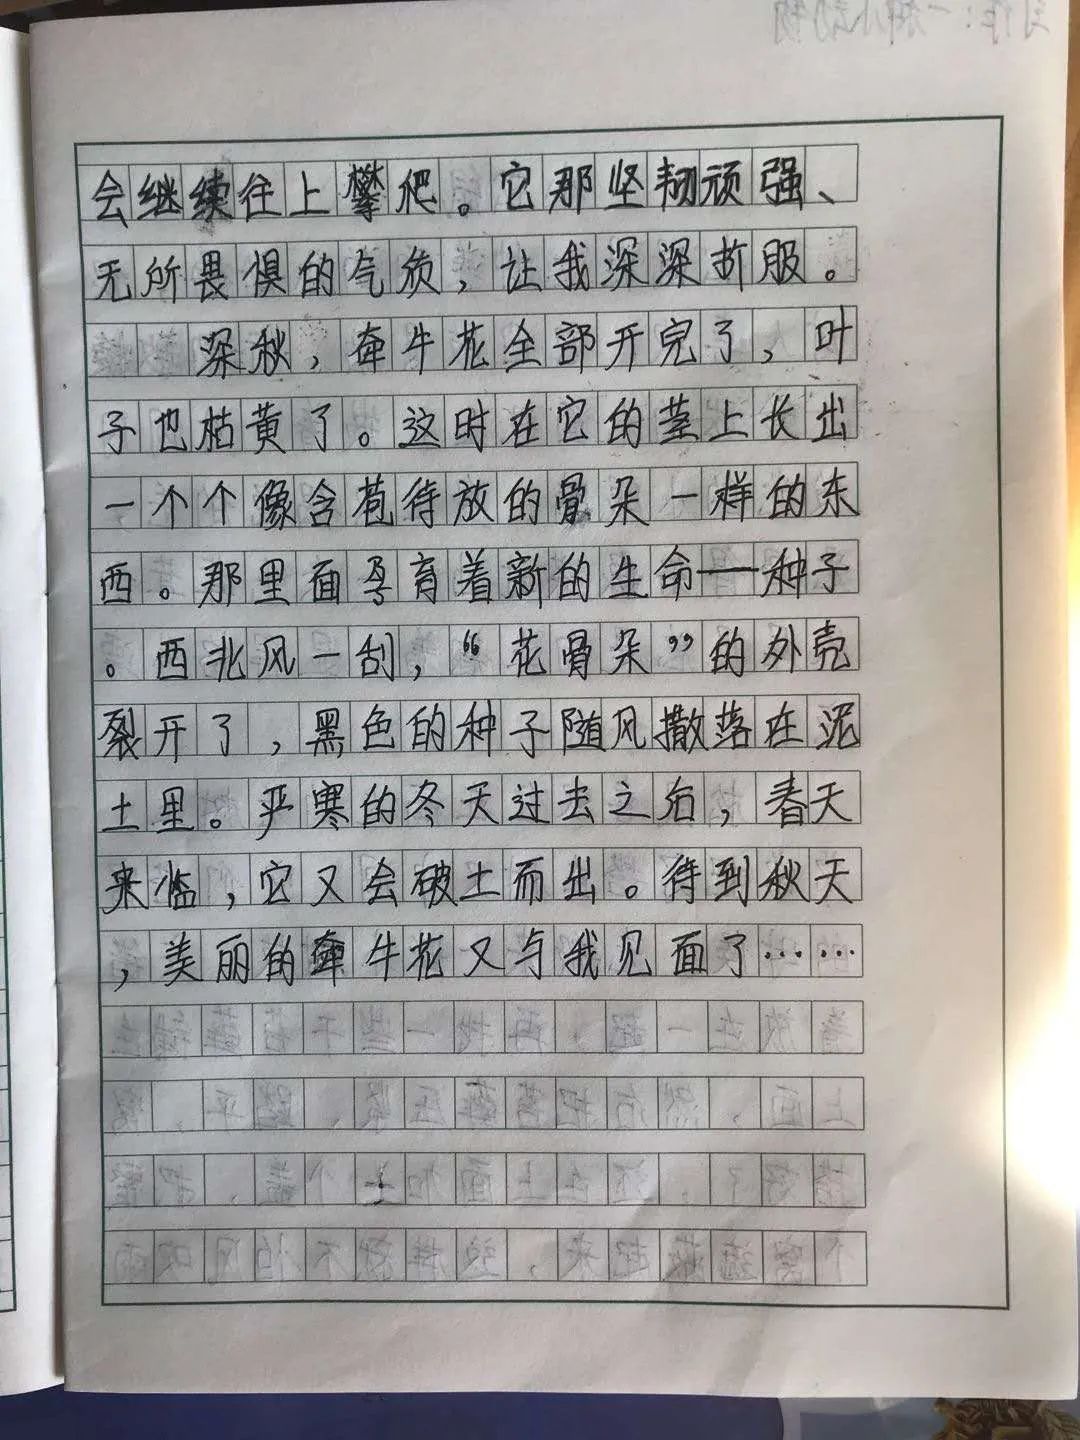 会继续往上攀爬。它那坚韧顽强、
无所畏惧的气质，让我深深折服。
深秋，牵牛花全部开完了，叶
子也枯黄了。这时在它的茎上长出
一个个像含苞待放的骨朵一样的东
西。那里面孕育着新的生命——种子
。西北风一刮，“花骨朵”的外壳
裂开了，黑色的种子随风撒落在泥
土里。严寒的冬天过去之后，春天
来临，它又会破土而出。待到秋天
，美丽的牵牛花又与我见面了……